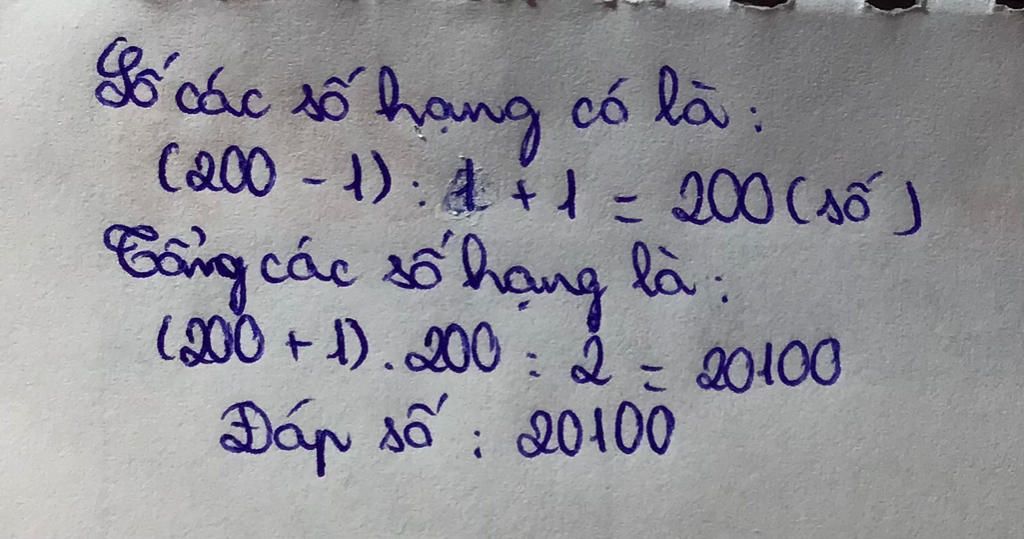 Số các số hạng có là:
(200 - 1) : 1 + 1 = 200 (số)
Tổng các số hạng là:
(200 + 1) . 200 : 2 = 20100
Đáp số : 20100